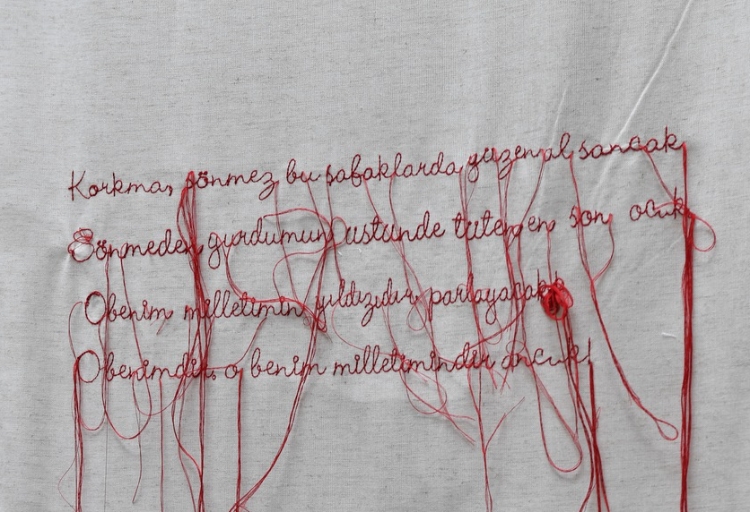 Korkma, sönmez bu şafaklarda yüzen al sancak
Sönmeden yurdumun üstünde tüten en son ocak
O benim milletimin yıldızıdır parlayacak
O benimdir, o benim milletimindir ancak!